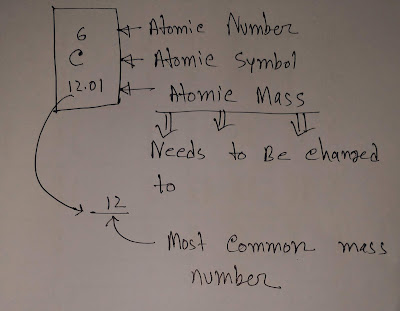 6 Atomic Number
C Atomic Symbol
12.01 Atomic Mass
Needs to Be changed
to
12
Most Common mass
number